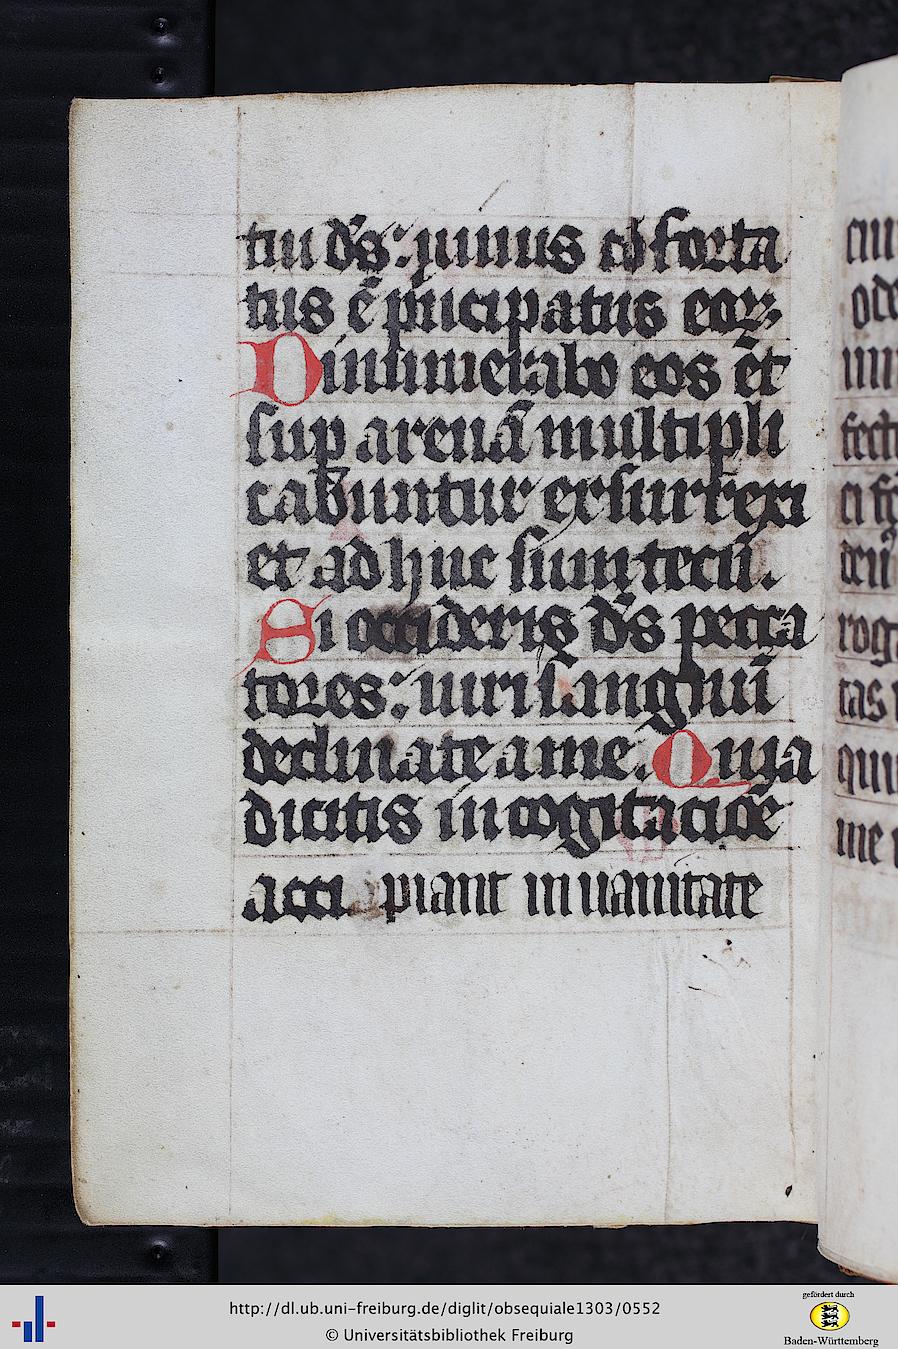 tui ds: nimis cōforta
tus ē pncipatus eoꝝ
Dinumerabo eos et
sup arenā multipli
cabuntur exsurrexi
et adhuc sum tecū.
Si occideris ds pecca
tores: uiri sanguinū
declinate a me. Quia
dicitis in cogitacioē
acci piant in uanitate
http://dl.ub.uni-freiburg.de/diglit/obsequiale1303/0552
© Universitätsbibliothek Freiburg
gefördert durch
Baden-Württemberg